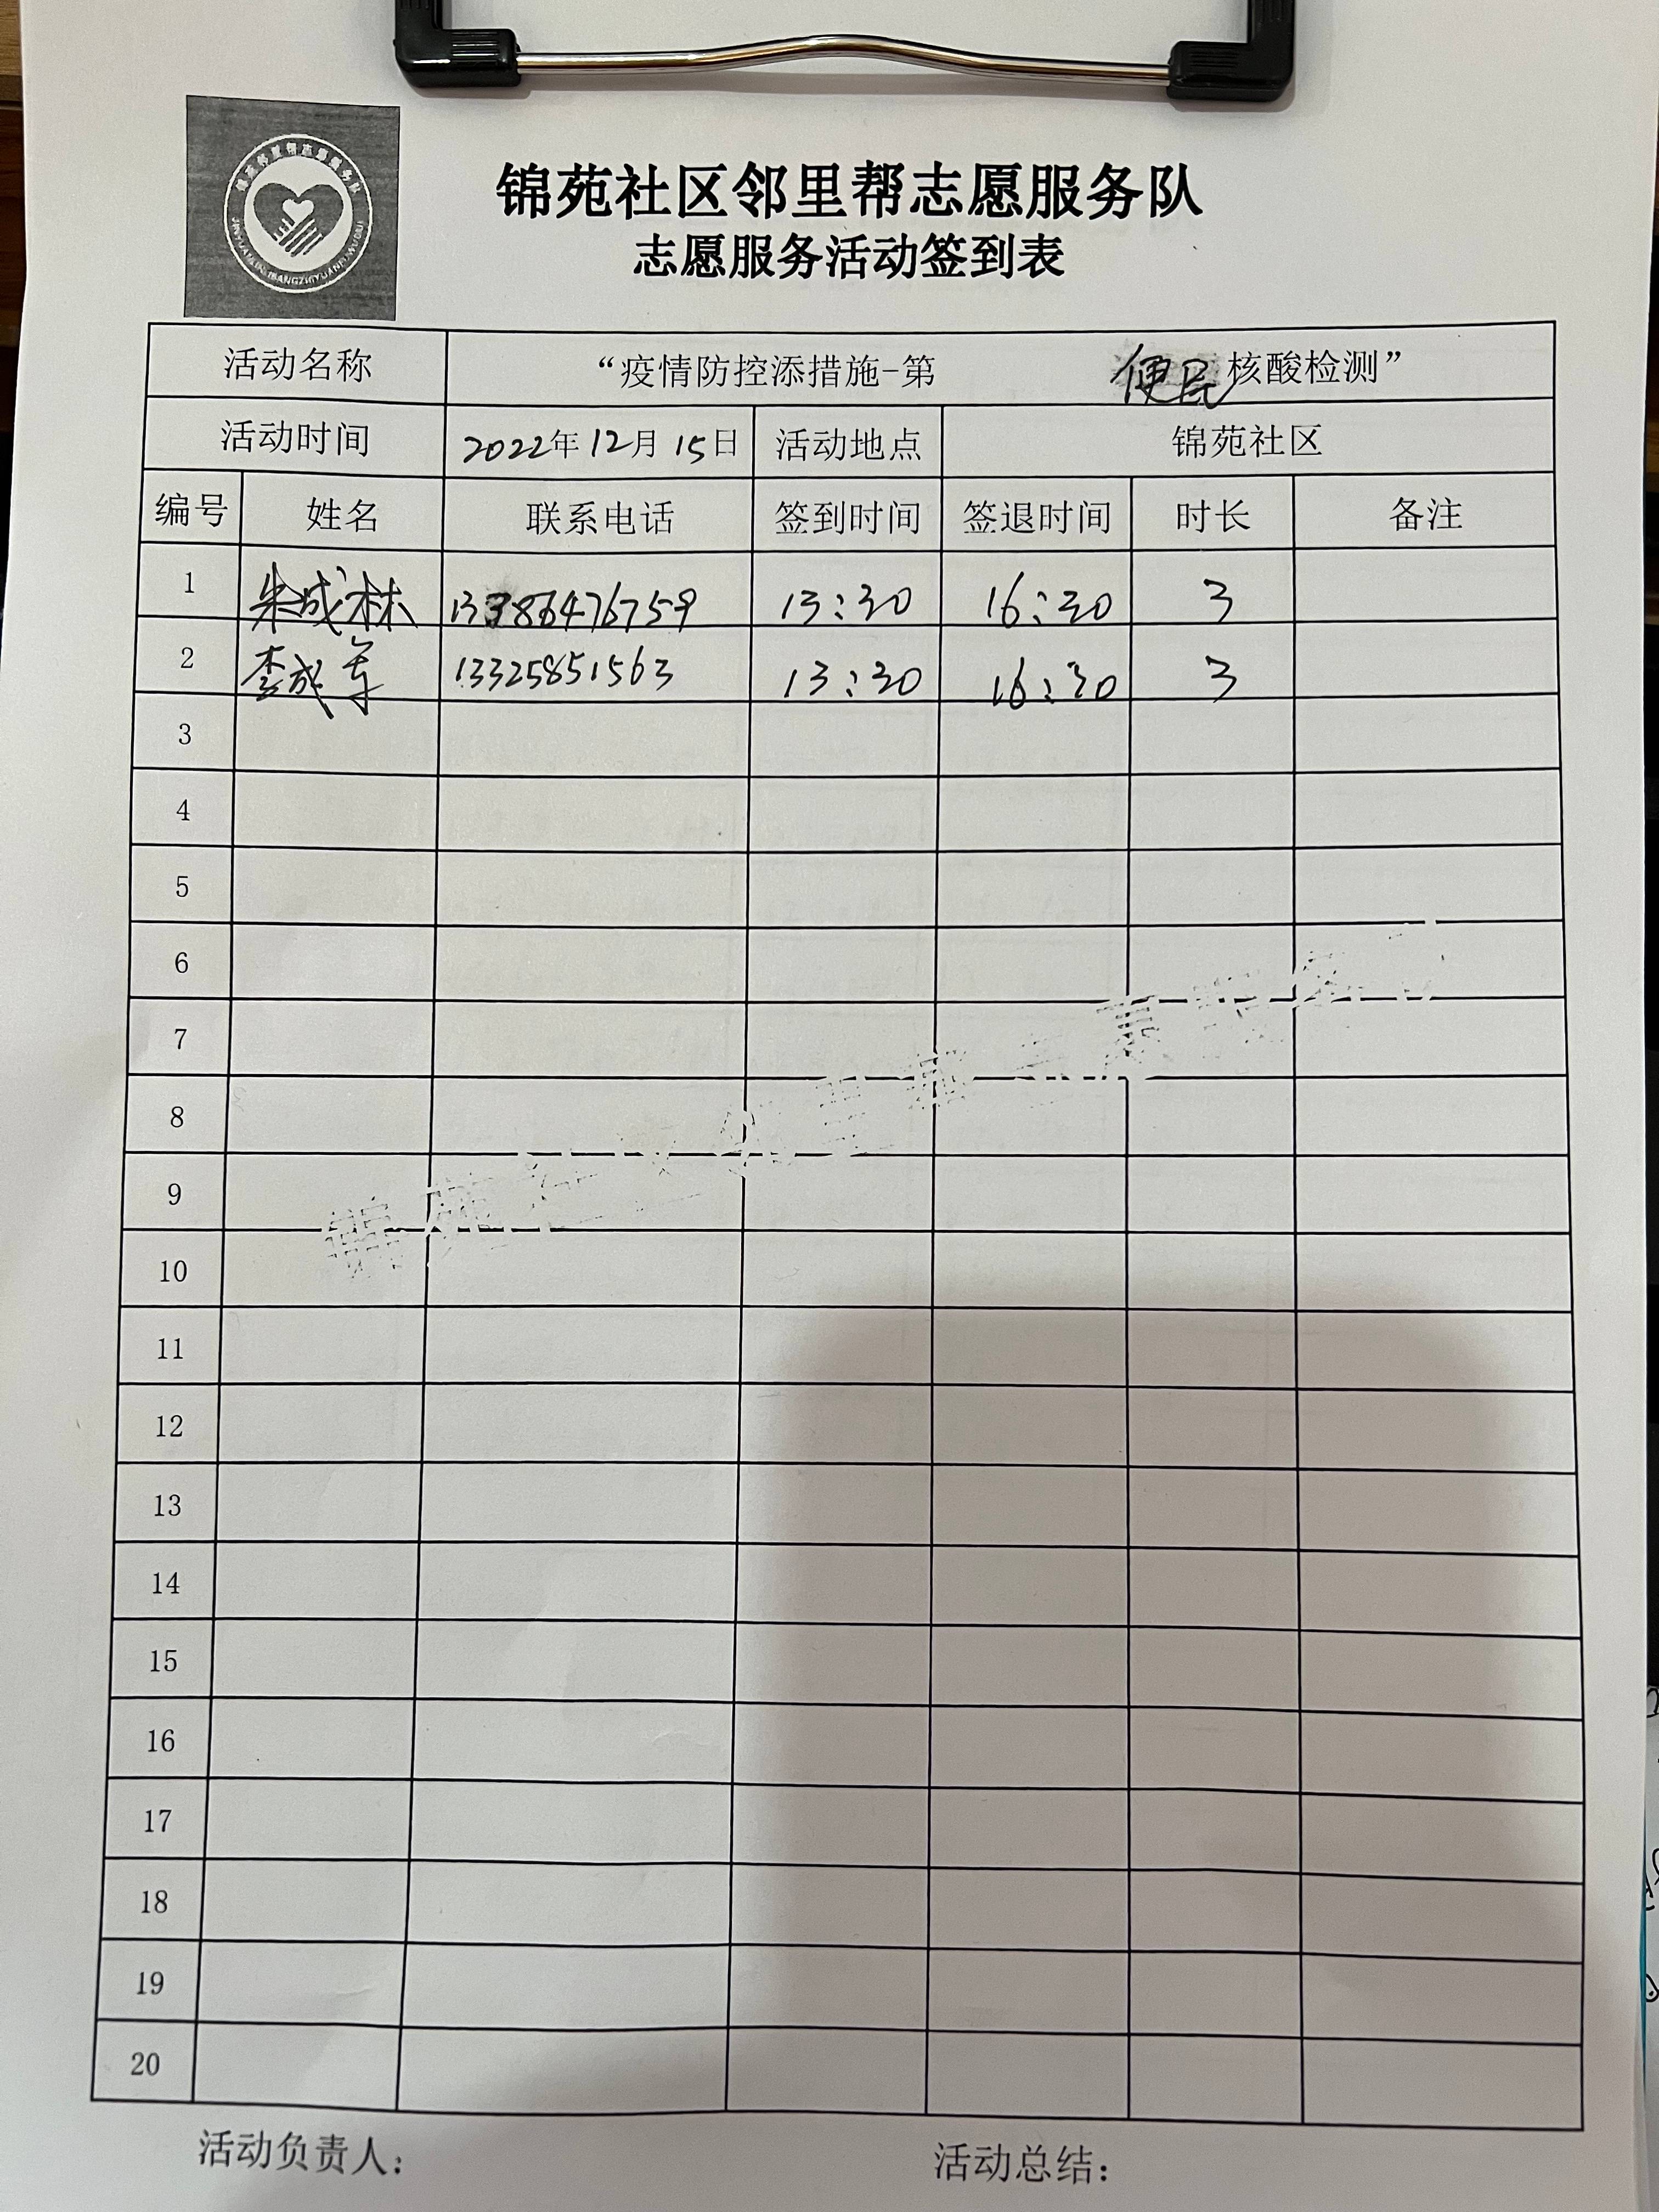 锦苑社区邻里帮志愿服务队
志愿服务活动签到表
活动名称 “疫情防控添措施-第 便民 核酸检测”
活动时间 2022年12月15日 活动地点 锦苑社区
编号 姓名 联系电话 签到时间 签退时间 时长 备注
1 朱成林 13:30 16:30 3
2 李成军 13325851563 13:30 16:30 3
3
4
5
6
7
8
9
10
11
12
13
14
15
16
17
18
19
20
活动负责人： 活动总结：